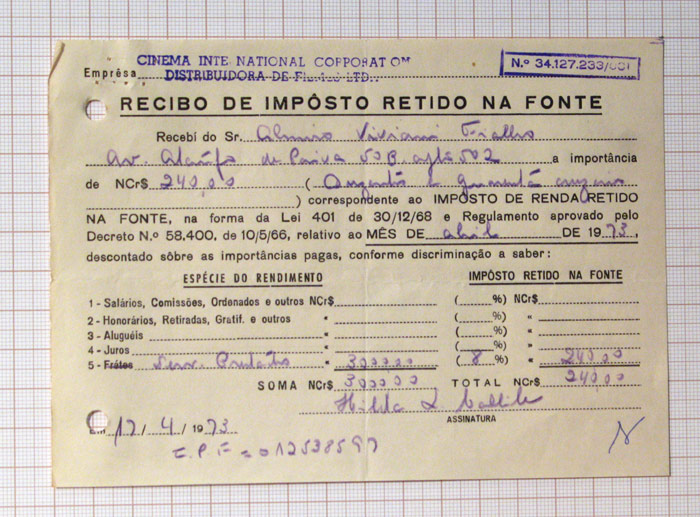 CINEMA INTE NATIONAL CORPORAT OM
Emprêsa DISTRIBUIDORA DE LTD.
N.º 34.127.233/001
RECIBO DE IMPÔSTO RETIDO NA FONTE
Recebí do Sr. Viviani Fialho
Av. Ataulfo de Paiva 50 B, aptº 502 a importância
de NCr$ 240,00 ( Duzentos e quarenta cruzeiros
) correspondente ao IMPOSTO DE RENDA RETIDO
NA FONTE, na forma da Lei 401 de 30/12/68 e Regulamento aprovado pelo
Decreto N.º 58.400, de 10/5/66, relativo ao MÊS DE abril DE 1973,
descontado sôbre as importâncias pagas, conforme discriminação a saber:
ESPÉCIE DO RENDIMENTO IMPÔSTO RETIDO NA FONTE
1 - Salários, Comissões, Ordenados e outros NCr$ ( %) NCr$
2 - Honorários, Retiradas, Gratif. e outros " ( %) "
3 - Aluguéis " ( %) "
4 - Juros " ( %) "
5 - Frétes Serv. Prestados " 3000,00 ( 8 %) " 240,00
SOMA NCr$ 3000,00 TOTAL NCr$ 240,00
Hilda
ASSINATURA
Em 17/ 4/ 1973
C.P.F = 012538597